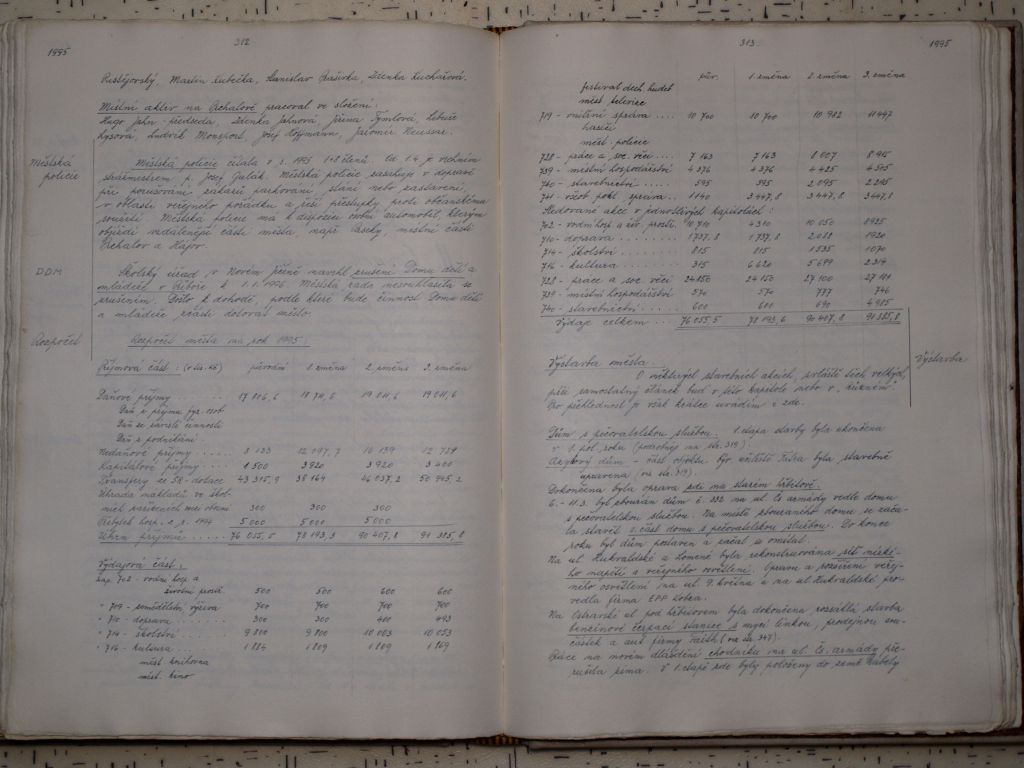 1995
312
Pustějovský, Martin Kubečka, Stanislav Začirka, Zdenka Kuchařová.
Místní aktiv na Prchalově pracoval ve složení:
Hugo Jahn - předseda, Zdenka Jahnová, Jiřina Týmlová, Libuše
Lysová, Ludvík Monsport, Josef Hoffmann, Jaromír Neusser.
Městská
policie
Městská policie čítala v r. 1995 1+8 členů. Od 1.4. je vrchním
strážmistrem p. Josef Gulák. Městská policie zasahuje v dopravě
při porušování zákazů parkování, stání nebo zastavení,
v oblasti veřejného pořádku a řeší přestupky proti občanskému
soužití. Městská policie má k dispozici osobní automobil, kterým
objíždí vzdálenější části města, např. Paseky, místní části
Prchalov a Hájov.
DDM
Školský úřad v Novém Jičíně navrhl zrušení Domu dětí a
mládeže v Příboře k 1.1.1996. Městská rada nesouhlasila se
zrušením. Došlo k dohodě, podle které bude činnost Domu dětí
a mládeže zčásti dotovat město.
Rozpočet
Rozpočet města na rok 1995:
Příjmová část: (v tis. Kč) původní 1. změna 2. změna 3. změna
Daňové příjmy 17 016,6 18 711,6 19 011,6 19 011,6
Daň z příjmu fyz. osob
Daň ze závislé činnosti
Daň z podnikání
Nedaňové příjmy .... 8 133 12 197,7 16 139 12 729
Kapitálové příjmy .... 1 500 3 920 3 920 3 400
Transfery ze SR - dotace 43 315,9 38 164 46 037,2 50 945,2
Úhrada nákladů ve škol-
ních zařízeních mezi obcemi 300 300 300
Přebytek hosp. z r. 1994 5 000 5 000 5 000
Úhrn příjmů ...... 76 055,5 78 193,3 90 407,8 91 385,8
Výdajová část:
kap. 702 - vodní hosp. a
životní prostř. 500 500 600 600
" 709 - zemědělství, výživa 700 700 700 700
" 710 - doprava ......... 300 300 400 493
" 714 - školství ........ 9 800 9 800 10 083 10 053
" 716 - kultura ........ 1 884 1 809 1 809 1 869
měst. knihovna
měst. kino
313
1995
pův. 1. změna 2. změna 3. změna
festival dech. hudeb
měst. televize
719 - vnitřní správa .... 10 700 10 700 10 982 11 447
hasiči
měst. policie
728 - práce a soc. věci .... 7 163 7 163 8 007 8 915
739 - místní hospodářství 4 376 4 376 4 425 4 505
740 - stavebnictví .... 595 595 2 095 2 205
741 - všeob. pokl. správa .. 1 140 3 447,8 3 447,8 3 447,8
Sledované akce v jednotlivých kapitolách:
702 - vodní hosp. a živ. prostř. 10 710 4 310 10 050 8 925
710 - doprava ......... 1 737,8 1 737,8 2 088 1 920
714 - školství ........ 815 815 1 535 1 070
716 - kultura ........ 315 6 620 5 699 2 314
728 - práce a soc. věci 24 150 24 150 27 100 27 181
739 - místní hospodářství 570 570 777 746
740 - stavebnictví ..... 600 600 690 4 985
Výdaje celkem ... 76 055,5 78 193,6 90 407,8 91 385,8
Výstavba
Výstavba města.
O některých stavebních akcích, zvláště těch velkých,
píši samostatný článek buď v této kapitole nebo v „různém“.
Pro přehlednost je však krátce uvádím i zde.
Dům s pečovatelskou službou. 1. etapa stavby byla ukončena
v 1. pol. roku (podrobněji na str. 318).
Azylový dům - část objektu býv. učiliště Tatra byla stavebně
upravena (na str. 319).
Dokončena byla oprava zdi na starém hřbitově.
6. - 11.3. byl zbourán dům č. 232 na ul. Čs. armády vedle domu
s pečovatelskou službou. Na místě zbouraného domu se zača-
la stavět 2. část domu s pečovatelskou službou. Do konce
roku byl dům postaven a začal se omítat.
Na ul. Hukvaldské a Lomené byla rekonstruována síť nízké-
ho napětí a veřejného osvětlení. Opravu a rozšíření veřej-
ného osvětlení na ul. 9. května a na ul. Hukvaldské pro-
vedla firma EPP Kotka.
Na Ostravské ul. pod hřbitovem byla dokončena rozsáhlá stavba
benzinové čerpací stanice s mycí linkou, prodejnou sou-
částek a aut firmy Faith (na str. 347).
Práce na novém dláždění chodníku na ul. Čs. armády pře-
rušila zima. V 1. etapě zde byly položeny do země kabely